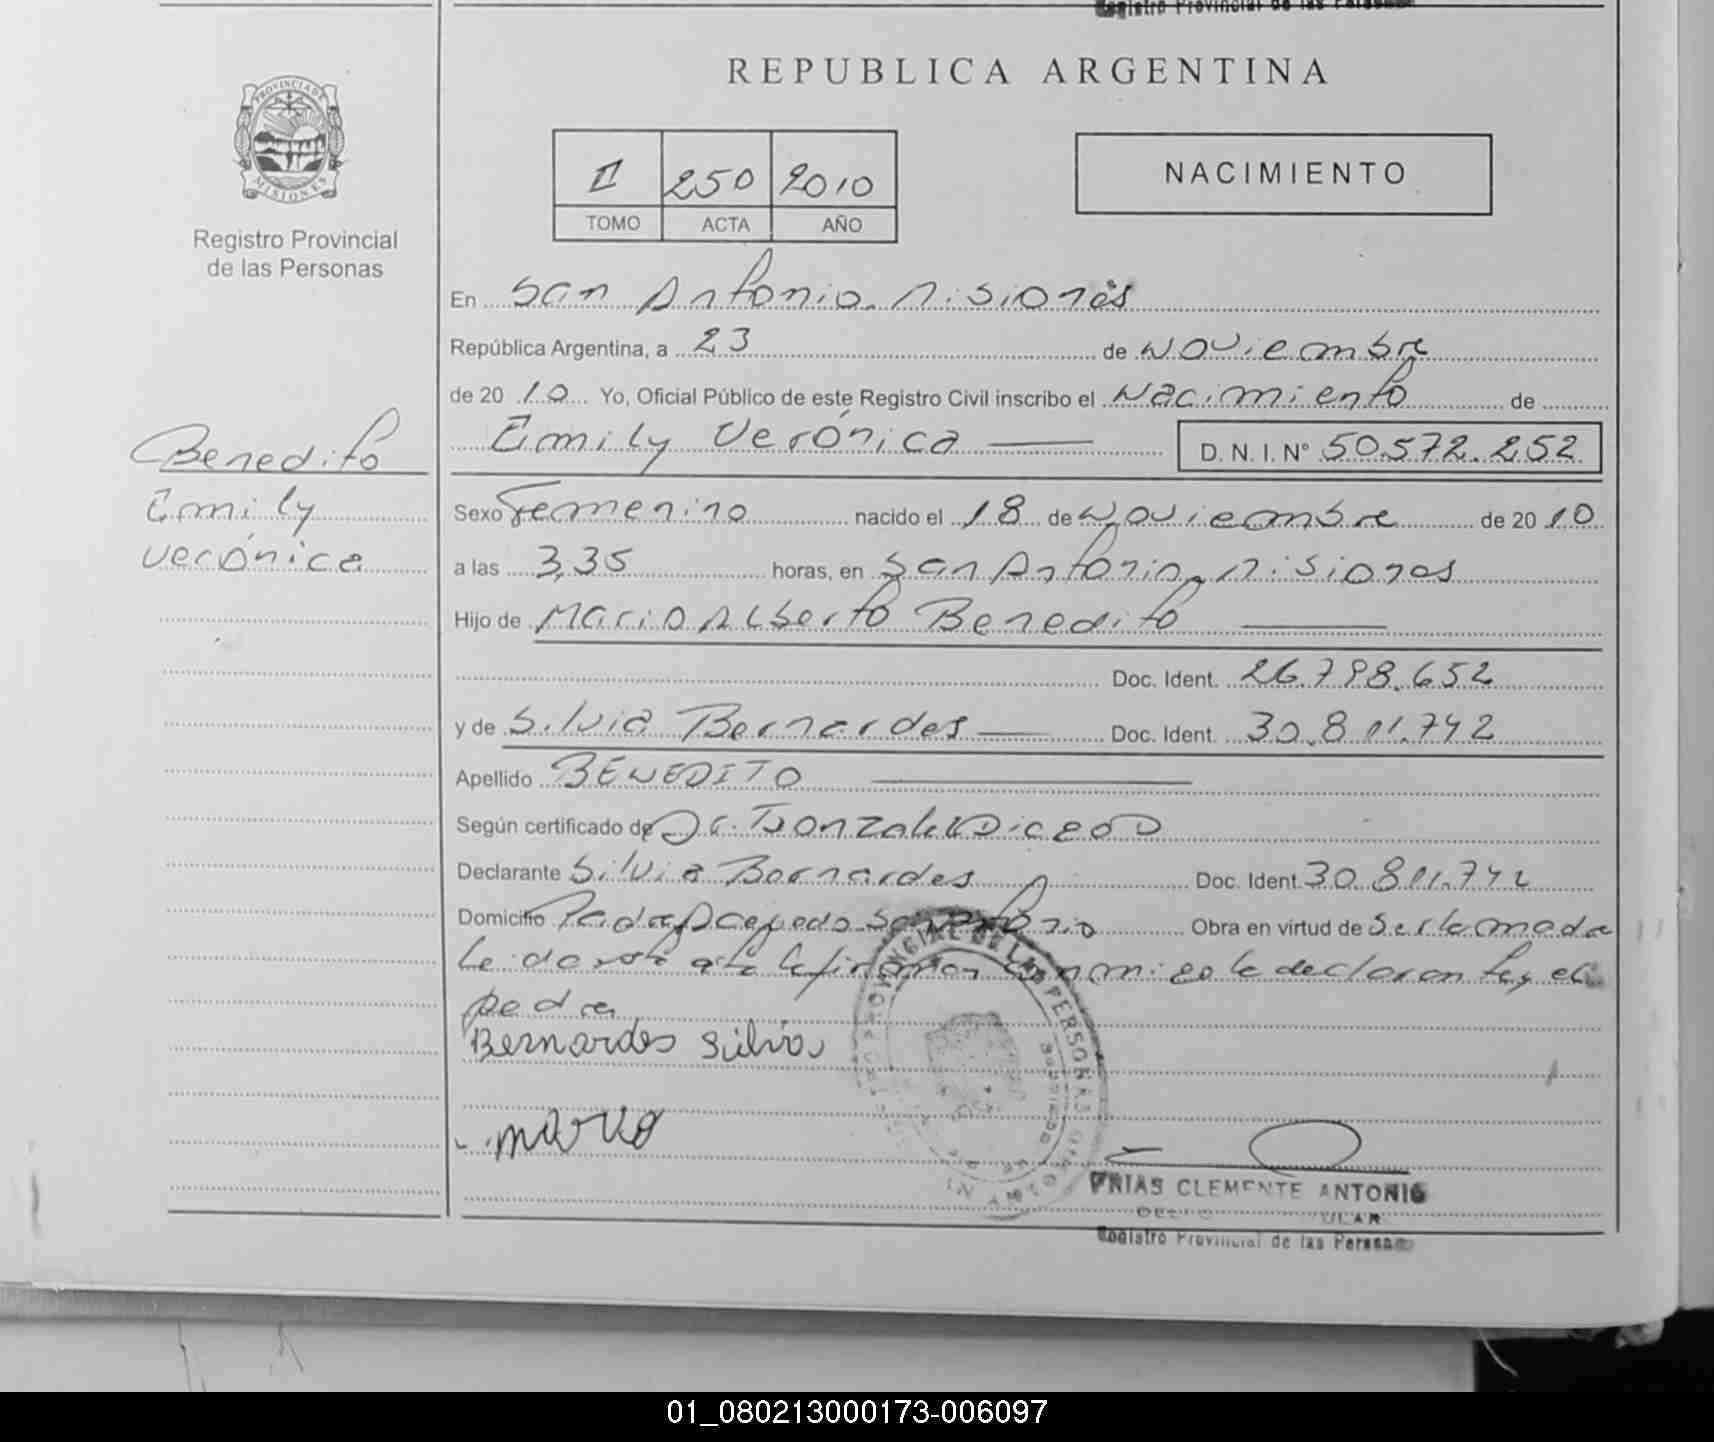 Registro Provincial de las Personas
REPUBLICA ARGENTINA
PROVINCIA DE
MISIONES
Registro Provincial
de las Personas
II 250 2010
TOMO ACTA AÑO
NACIMIENTO
En San Antonio. Misiones
República Argentina, a 23 de Noviembre
de 20 10 Yo, Oficial Público de este Registro Civil inscribo el Nacimiento de
Emily Verónica D. N. I. N° 50.572.252
Benedito
Emily
Verónica
Sexo Femenino nacido el 18 de Noviembre de 20 10
a las 3,35 horas, en San Antonio, Misiones
Hijo de Mario Alberto Benedito
Doc. Ident. 26.798.652
y de Silvia Bernardes Doc. Ident. 30.811.742
Apellido BENEDITO
Según certificado de Dr. Gonzalez
Declarante Silvia Bernardes Doc. Ident. 30.811.742
Domicilio San Antonio Obra en virtud de Ser la madre
Leida esta acta la firman conmigo la declarante y el
padre
Bernardes Silvia
mario
PROVINCIAL DE LAS PERSONAS
FRIAS CLEMENTE ANTONIO
Registro Provincial de las Personas
01_080213000173-006097